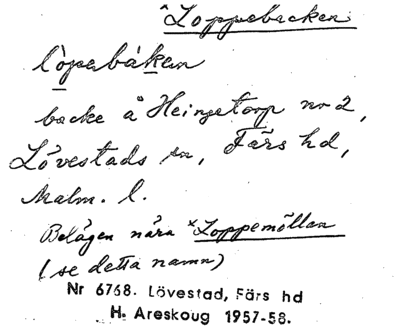 ^Loppebacken
lòpebákan
backe å Heingetorp nr 2,
Lövestads sn, Färs hd,
Malm. l.
Belägen nära ˣLoppemöllan
(se detta namn)
Nr 6768. Lövestad, Färs hd
H. Areskoug 1957-58.